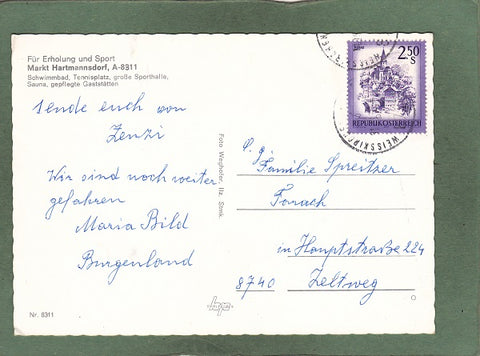 Für Erholung und Sport
Markt Hartmannsdorf, A-8311
Schwimmbad, Tennisplatz, große Sporthalle,
Sauna, gepflegte Gaststätten
Sende euch von
Zenzi
Wir sind noch weiter
gefahren
Maria Bild
Burgenland
Nr. 8311
Foto Wegheler, Ilz, Stmk.
2.50
S
REPUBLIK ÖSTERREICH
WEISSKIRCHEN
Familie Spreitzer
Farrach
in Hauptstraße 224
8740 Zeltweg